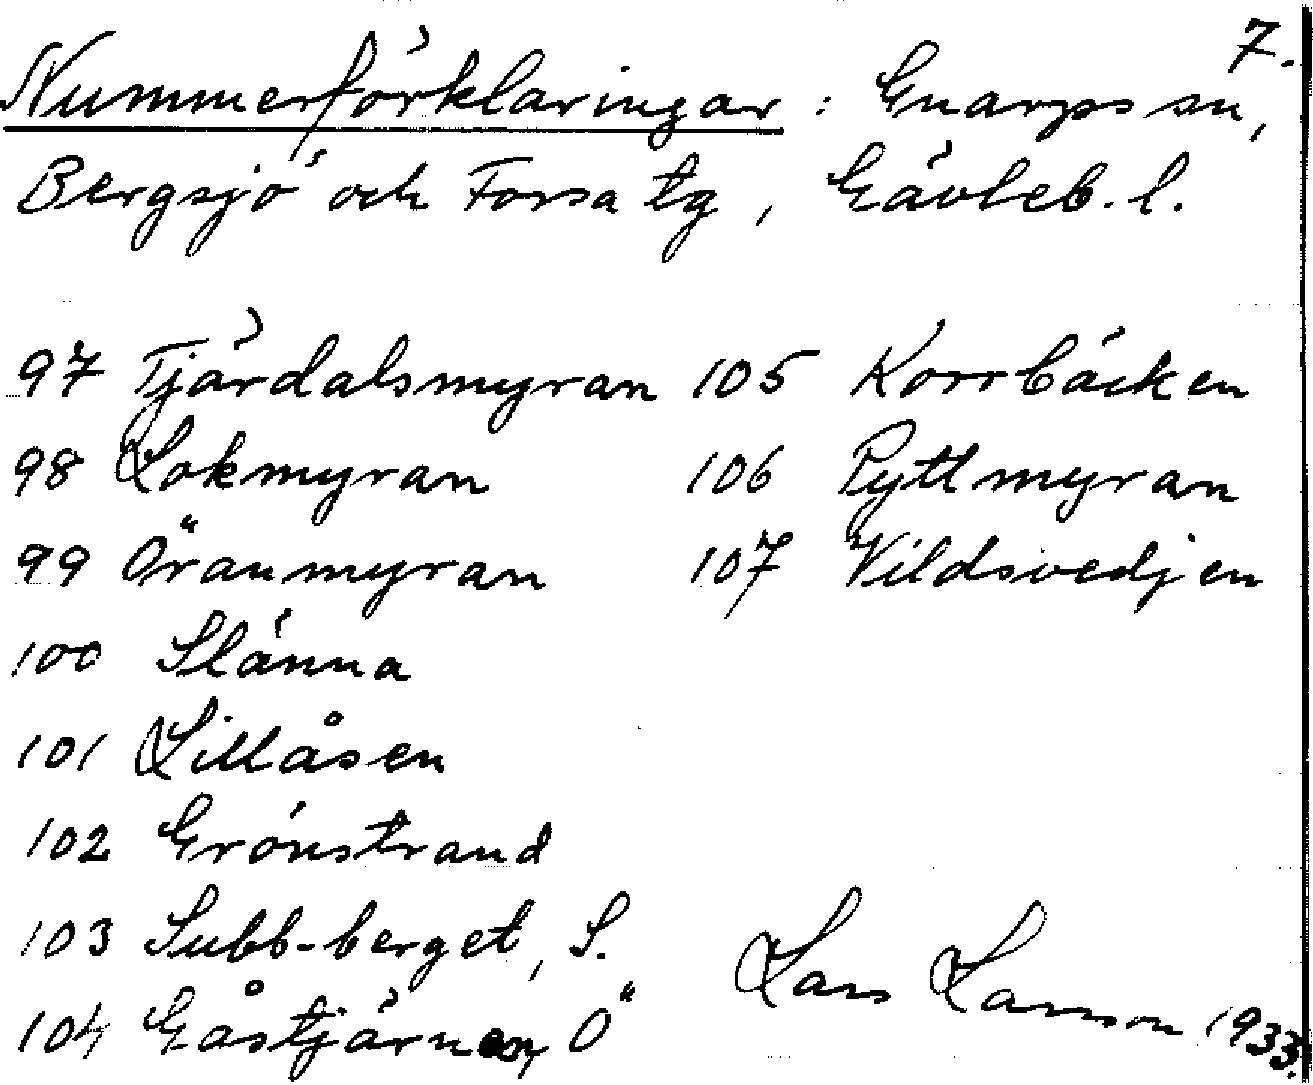 7.
Nummerförklaringar: Gnarps sn,
Bergsjö och Forsa tg, Gävleb. l.
97 Tjärdalsmyran 105 Korrbäcken
98 Lokmyran 106 Pyttmyran
99 Öranmyran 107 Vildsvedjen
100 Slänna
101 Lillåsen
102 Grönstrand
103 Subb-berget, S.
104 Gåstjärnen, Ö
Lars Larsson 1933.